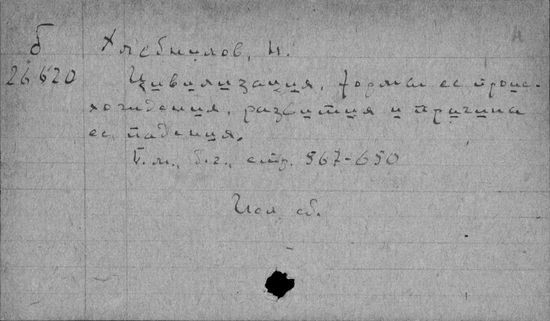 б Хлебников, Н.
26620 Цивилизация, формы ее проис-
хождения, развития и причина
ее падения.
Б.м., б.г., стр. 567-650